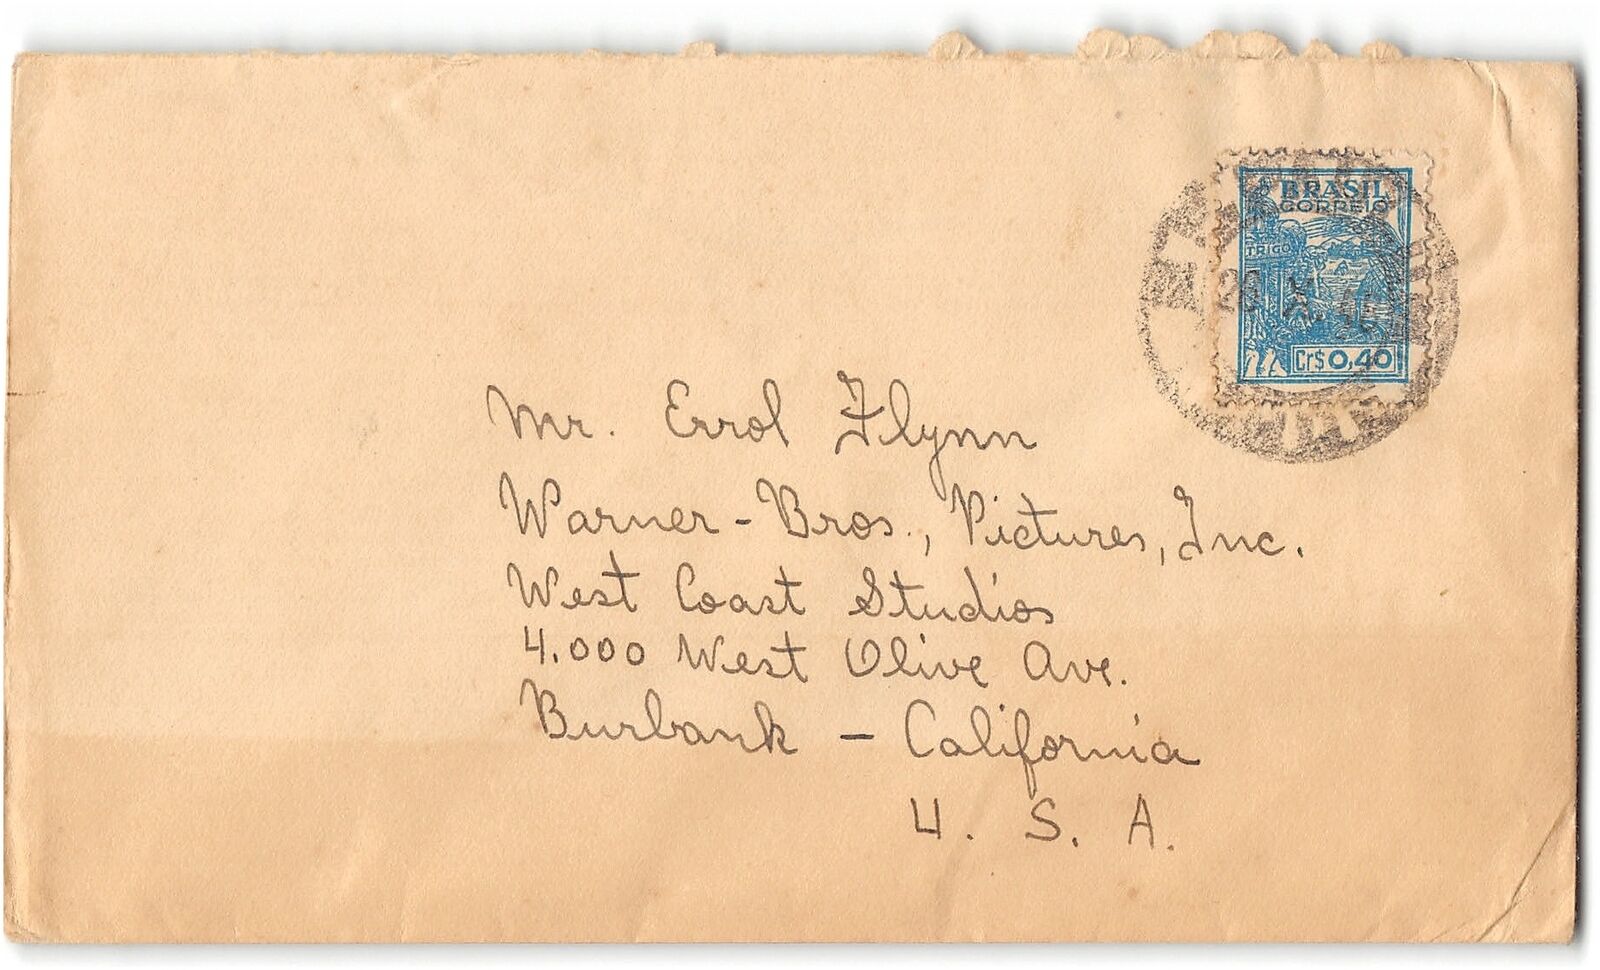 BRASIL
CORREIO
TRIGO
Cr$ 0,40
Mr. Errol Flynn
Warner-Bros., Pictures, Inc.
West Coast Studios
4.000 West Olive Ave.
Burbank - California
U. S. A.